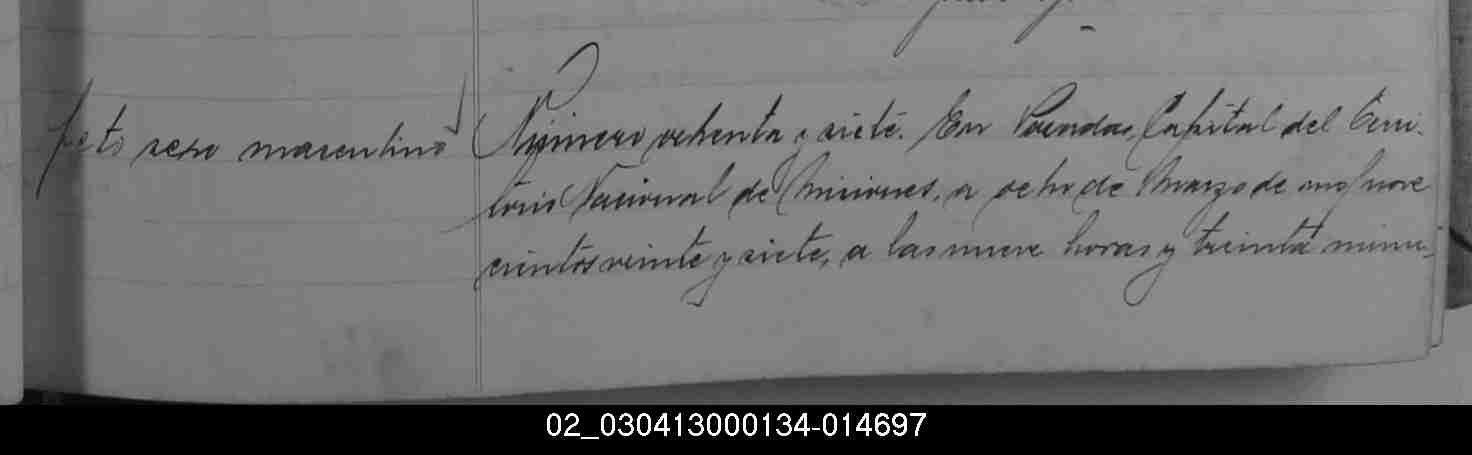 feto sexo masculino
Número ochenta y siete. En Posadas, Capital del Terri-
torio Nacional de Misiones, a ocho de Marzo de mil nove
cientos veinte y siete, a las nueve horas y treinta minu-
02_030413000134-014697